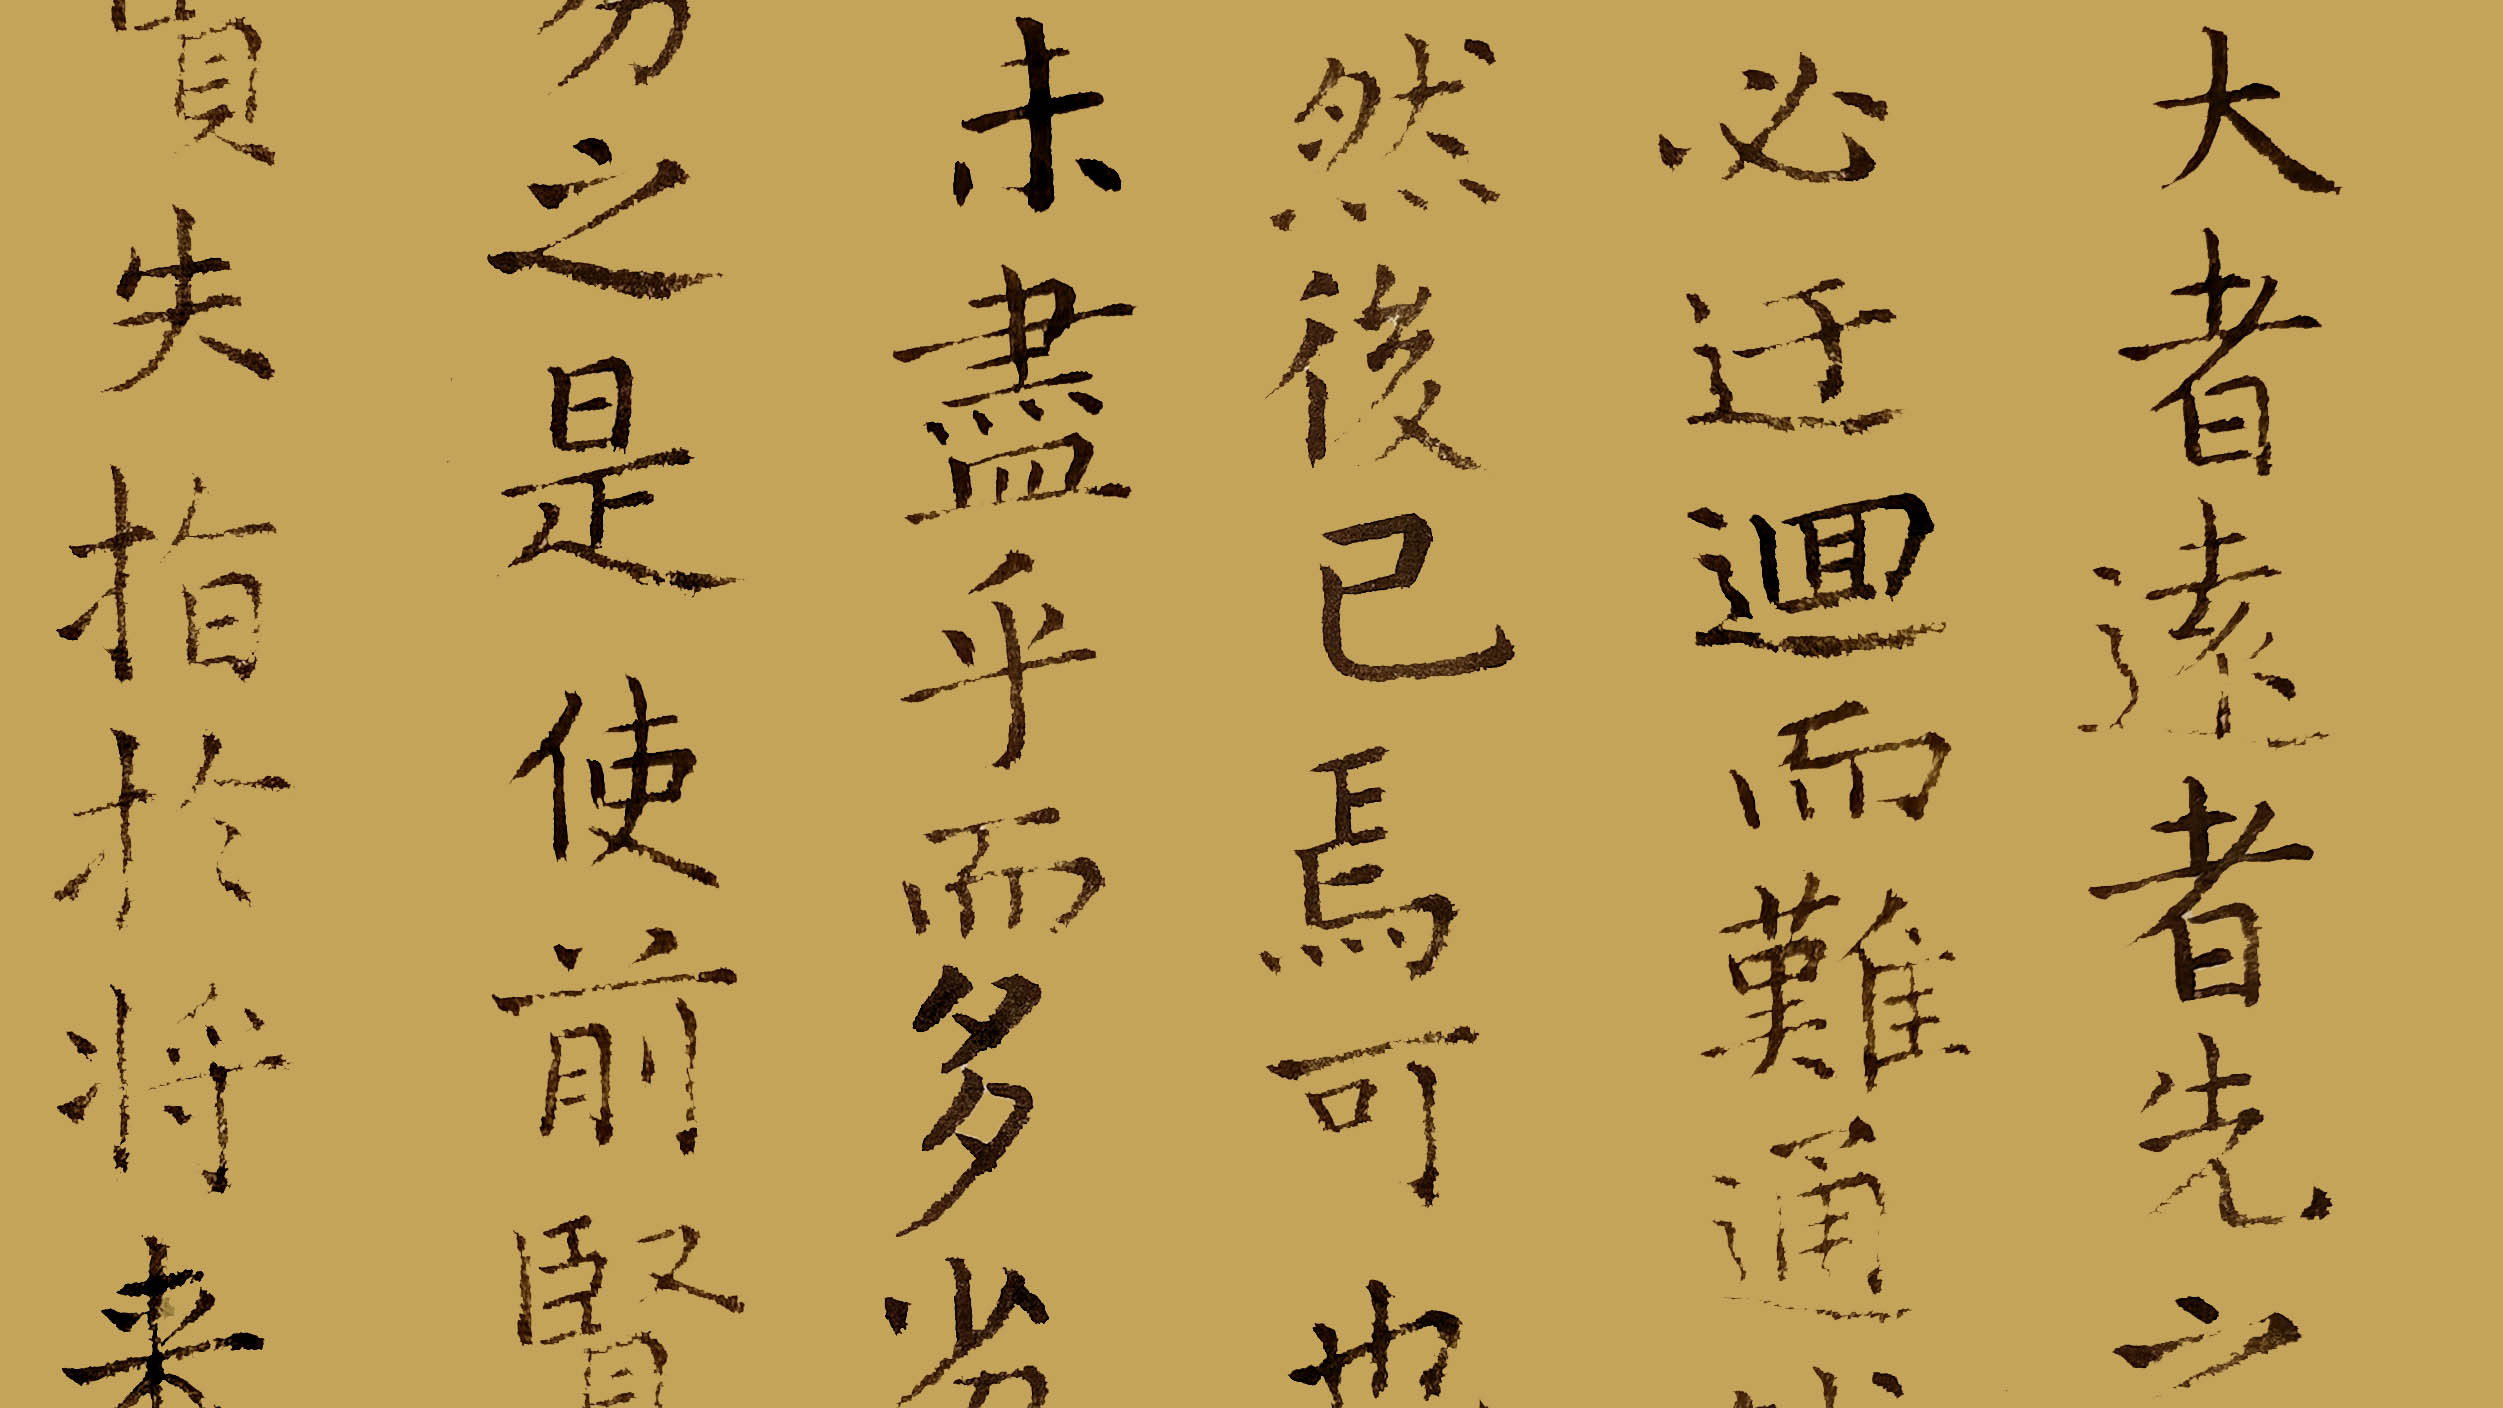 大者遠者先之
必迂迴而難通
然後已焉可也
未盡乎而多劣
之是使前賢
失指於將来